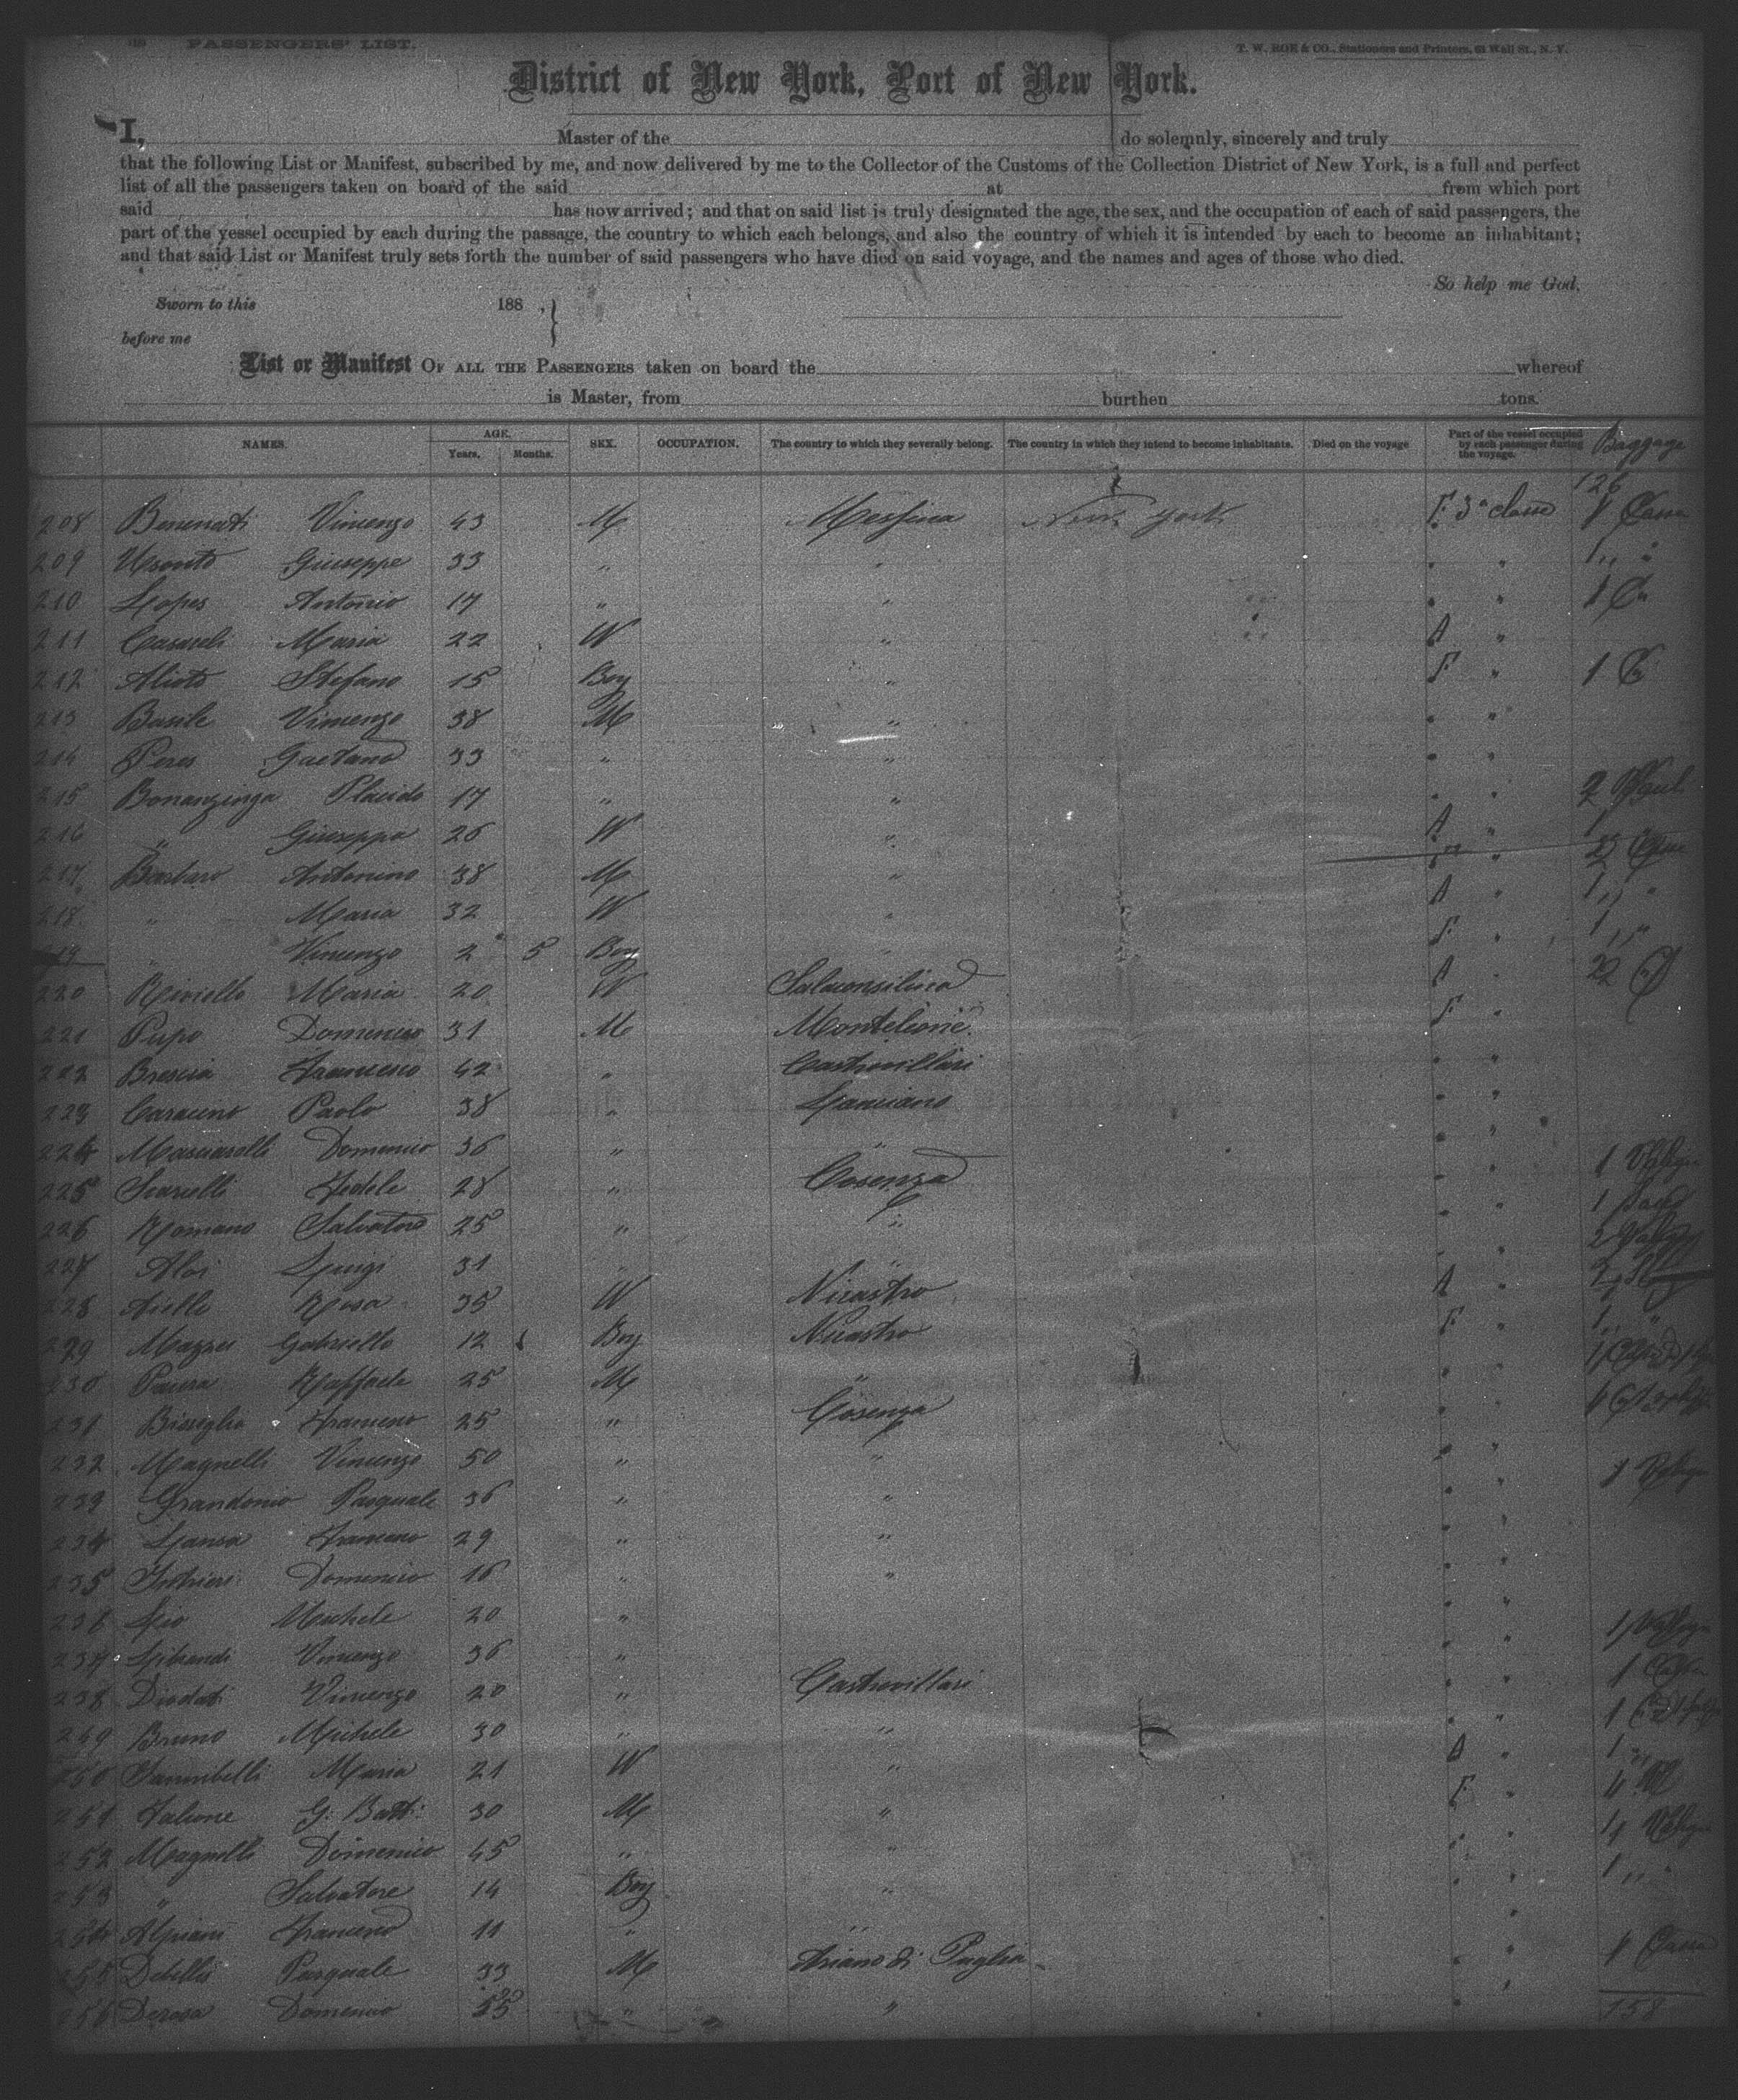 PASSENGERS' LIST.
T. W. ROE & CO., Stationers and Printers, 61 Wall St., N. Y.
District of New York, Port of New York.
I, Master of the do solemnly, sincerely and truly
that the following List or Manifest, subscribed by me, and now delivered by me to the Collector of the Customs of the Collection District of New York, is a full and perfect
list of all the passengers taken on board of the said at from which port
said has now arrived; and that on said list is truly designated the age, the sex, and the occupation of each of said passengers, the
part of the vessel occupied by each during the passage, the country to which each belongs, and also the country of which it is intended by each to become an inhabitant;
and that said List or Manifest truly sets forth the number of said passengers who have died on said voyage, and the names and ages of those who died.
So help me God.
Sworn to this 188 ,
before me
List or Manifest OF ALL THE PASSENGERS taken on board the whereof
is Master, from burthen tons.
NAMES. AGE. Years. Months. SEX. OCCUPATION. The country to which they severally belong. The country in which they intend to become inhabitants. Died on the voyage Part of the vessel occupied by each passenger during the voyage. Baggage
126
208 Benenati Vincenzo 43 M Messina New York F. 3a classe 1 Cassa
209 Giuseppe 33 " " " " 1 " "
210 Lopes Antonio 17 " " " " 1
211 Maria 22 W " A "
212 Alioto Stefano 15 Boy " F " 1
213 Basile Vincenzo 38 M " " "
214 Peres Gaetano 33 " " " "
215 Bonanzinga Placido 17 " " " " 2
216 " Giuseppa 26 W " A " 1
217 Barbaro Antonino 38 M " "
218 " Maria 32 W " A " 1 " "
219 " Vincenzo 2 5 Boy " F " 1 " "
220 Riviello Maria 20 W Salaconsilina A "
221 Pupo Domenico 31 M Monteleone F "
222 Brescia Francesco 42 " Castrovillari " "
223 Caracino Paolo 38 " Lanciano " "
224 Masciarelli Domenico 36 " " " "
225 Scarielli Fedele 28 " Cosenza " " 1
226 Romano Salvatore 25 " " " " 1
227 Aloi Luigi 31 " " " " 2
228 Aiello Rosa 35 W Nicastro A "
229 Mazzei Gabriello 12 Boy Nicastro F " 1 " "
230 Paura Raffaele 25 M " " " 1
231 Bisiglia Francesco 25 " Cosenza " "
232 Magnelli Vincenzo 50 " " " "
233 Grandonio Pasquale 36 " " " " 1
234 Lanza Francesco 29 " " " "
235 Domenico 16 " " " "
236 Lio Michele 20 " " "
237 Librandi Vincenzo 36 " " " 1
238 Diodati Vincenzo 20 " Castrovillari " " 1
249 Bruno Michele 30 " " " " 1
250 Iannibelli Maria 21 W " A " 1 "
251 Falcone G. Batt: 30 M " F "
252 Magnelli Domenico 45 " " " " 1
253 " Salvatore 14 Boy " " " 1 " "
254 Francesco 11 " " "
255 Debellis Pasquale 33 M Ariano di Puglia " " 1 Cassa
256 Derosa Domenico " " " "
158